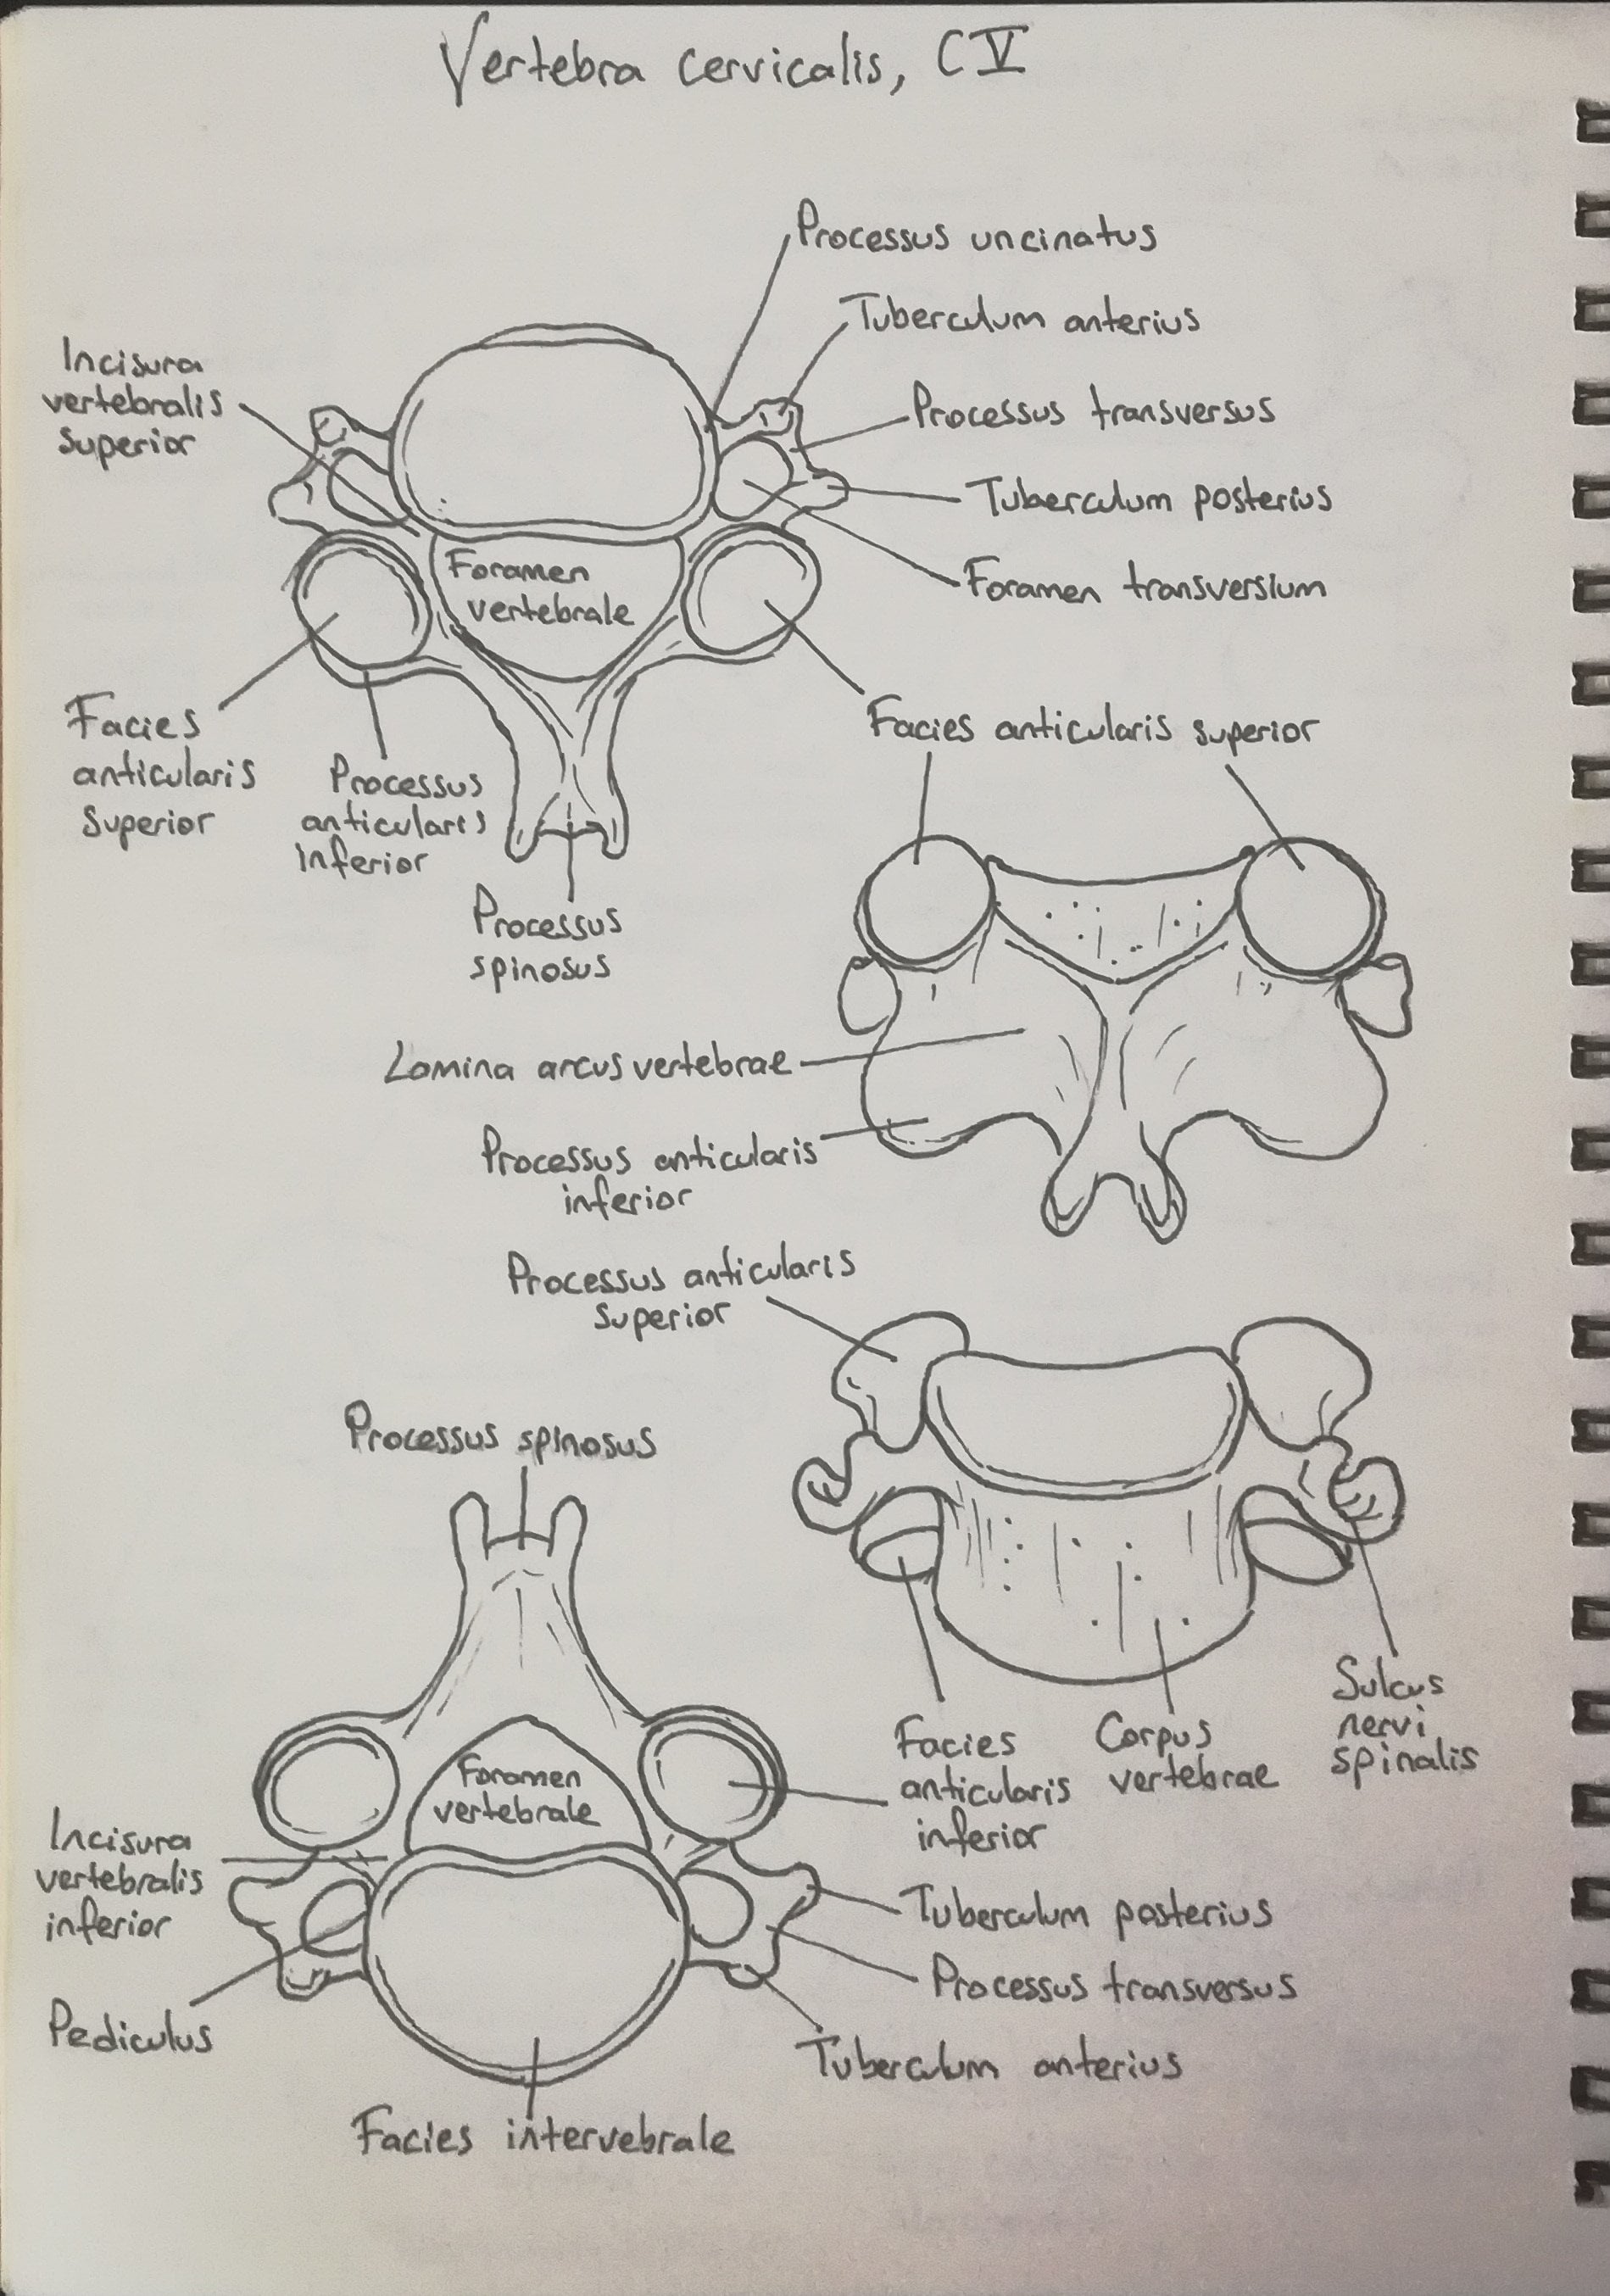 Vertebra cervicalis, CV
Processus uncinatus
Tuberculum anterius
Incisura
vertebralis
superior
Processus transversus
Tuberculum posterius
Foramen
vertebrale
Foramen transversium
Facies
anticularis
superior
Processus
anticularis
inferior
Facies anticularis superior
Processus
spinosus
Lamina arcus vertebrae
Processus anticularis
inferior
Processus anticularis
superior
Processus spinosus
Foramen
vertebrale
Facies
anticularis
inferior
Corpus
vertebrae
Sulcus
nervi
spinalis
Incisura
vertebralis
inferior
Tuberculum posterius
Processus transversus
Pediculus
Tuberculum anterius
Facies intervebrale